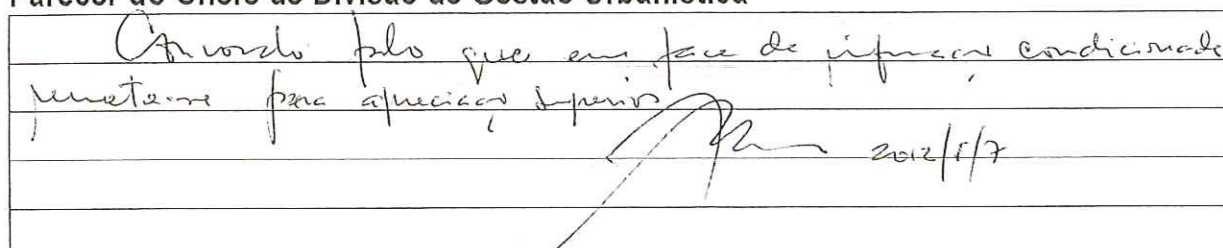 Parecer do Chefe de Divisão de Gestão Urbanística
Concordo pelo que em face da informação condicionada
remete-se para apreciação superior
2012/5/7